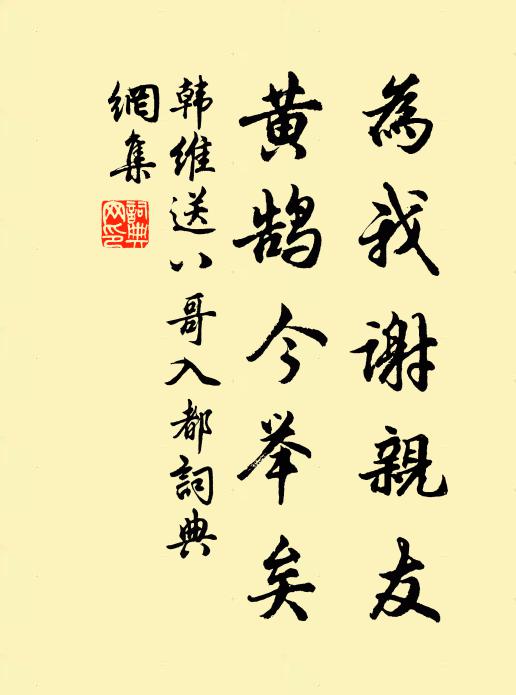 為我謝親友
黄鹄今举矣
韩维送八哥入都詞典
網集
詞典
网印